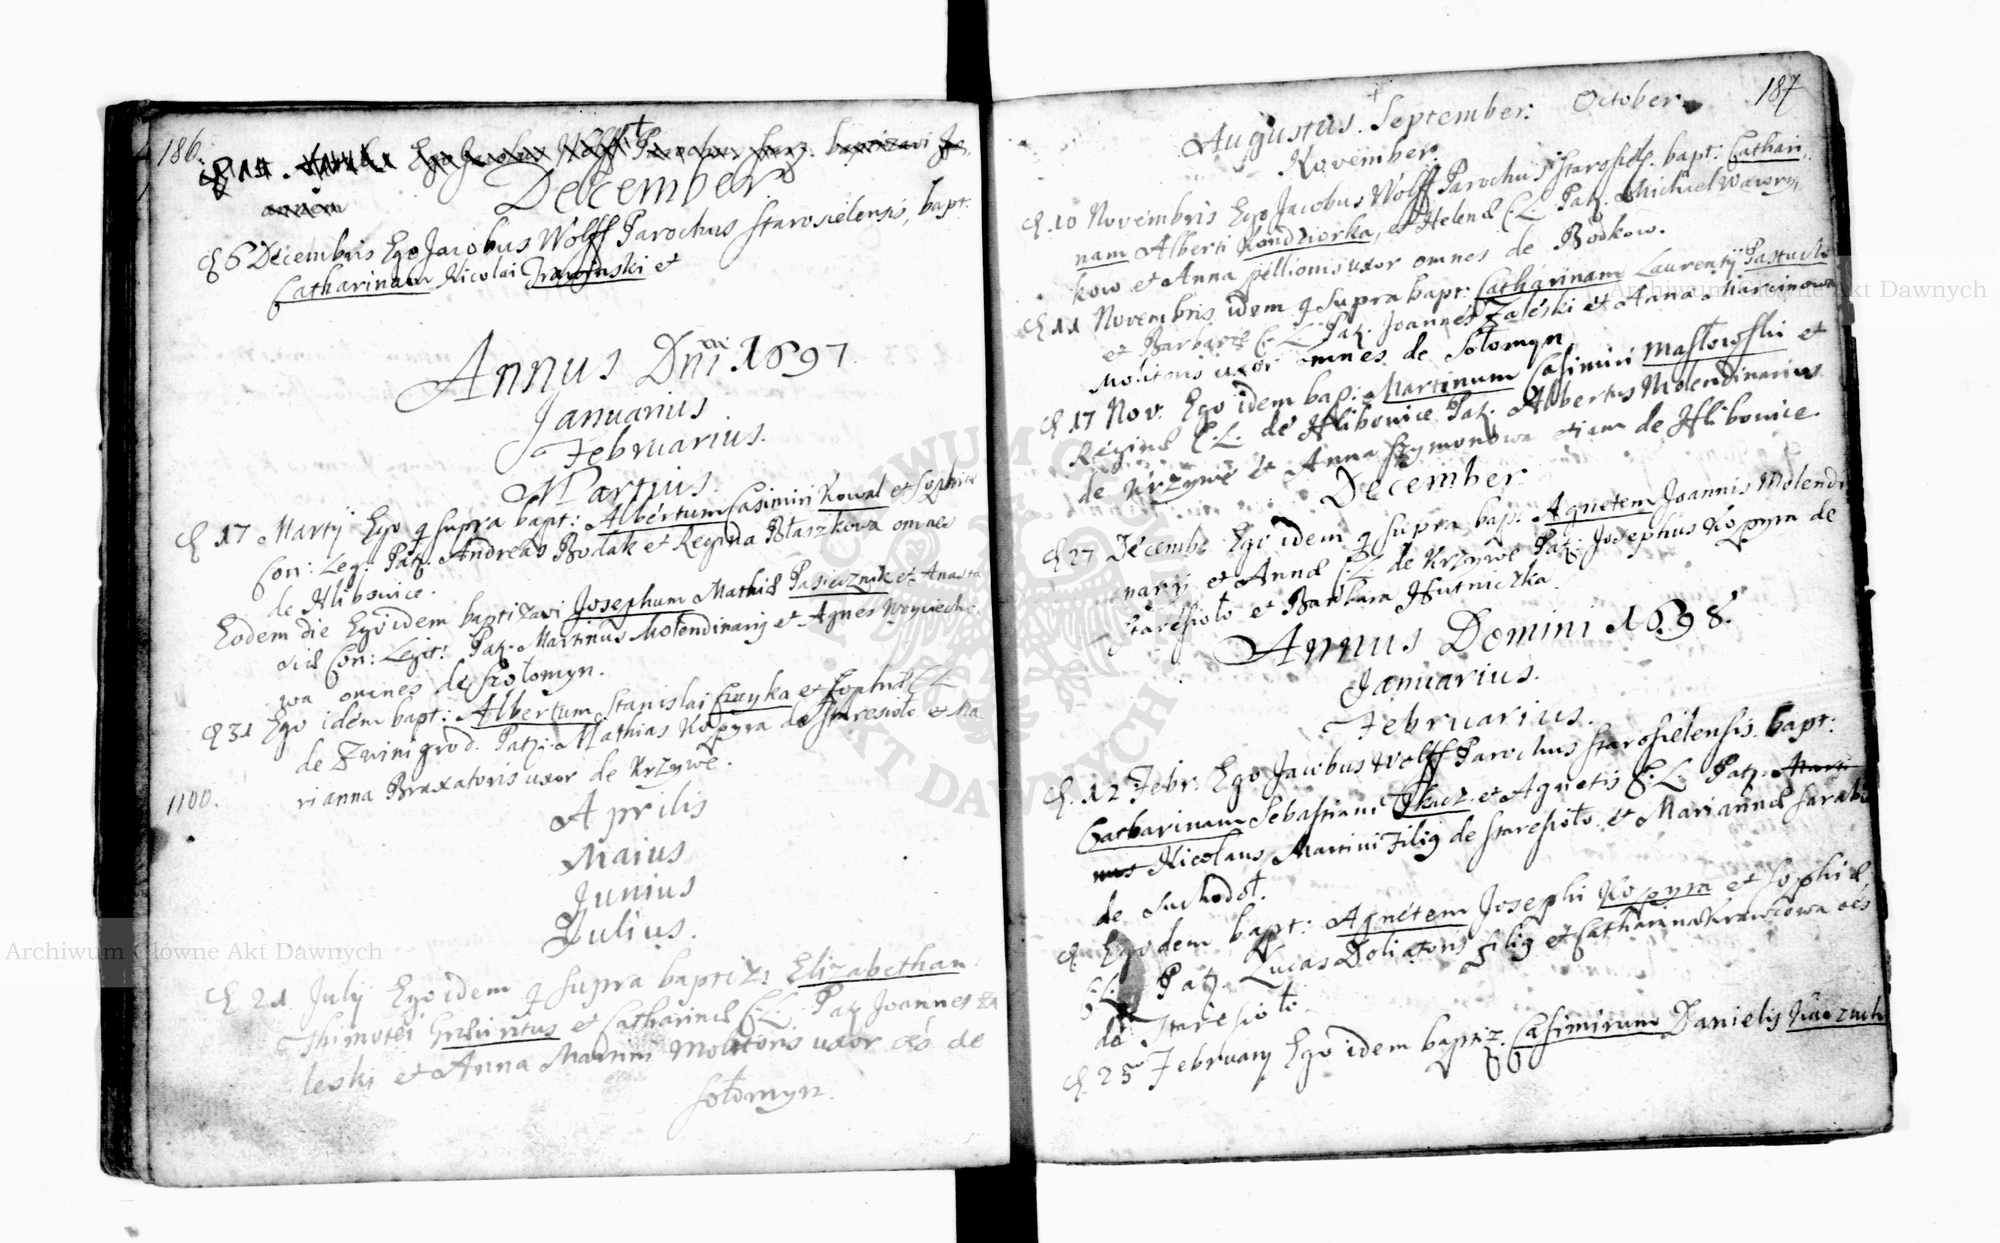 186.
Ego Jacobus Wolff Parochus Starz. baptizavi Jo
December
6 Decembris Ego Jacobus Wolff Parochus Starosielensis, bapt:
Catharinam Nicolai Trawinski et
Annus Dni 1697.
Januarius
Februarius.
Martius.
17 Martij Ego q supra bapt: Albertum Casimiri Kowal et Sophiæ
Con: Leg: Patr. Andreas Bodak et Regina Błaszkowa omnes
de Hlibowice.
Eodem die Ego idem baptizavi Josephum Mathiæ Pasiecznik et Anasta
siæ Con: Legit: Patr. Martinus Molendinarij et Agnes Woyciecho
wa omnes de Szołomyn.
31 Ego idem bapt: Albertum Stanislai Czuyka et Sophiæ C L
de Zwinigrod. Patr: Mathias Kopyra de Staresioło et Ma
rianna Braxatoris uxor de Krzywe.
1100.
Aprilis
Maius
Junius
Julius.
21 July Ego idem q supra baptiz: Elizabetham
Thimotei et Catharinæ C: L: Patr Joannes Za
leski et Anna Martini Molitoris uxor oēs de
Sołomyn.
187
Augustus. September: October
November.
10 Novembris Ego Jacobus Wolff Parochus Starosiel. bapt: Cathari,
nam Alberti Kondziorka, et Helenæ C: L: Patr. Michael Wawrzy,
kow et Anna pellionis uxor omnes de Bodkow.
11 Novembris idem q supra bapt: Catharinam Laurentij Pastucha
et Barbaræ C: L: Patr. Joannes Zaleski et Anna Marcinowa
Molitoris uxor omnes de Sołomyn.
17 Nov: Ego idem bap: Martinum Casimiri Masłowski et
Reginæ C: L: de Hlibowice Patr. Albertus Molendinarius
de Krzywe et Anna Szymonowa etiam de Hlibowice.
December.
27 Decembr Ego idem q supra bap: Agnetem Joannis Molendi
narij et Annæ C: L: de Krzywe Patr: Josephus Kopyra de
Staresioło et Barbara Hutniczka.
Annus Domini 1698.
Januarius.
Februarius.
12 Febr. Ego Jacobus Wolff Parochus Starosielensis bapt:
Catharinam Sebastiani Tkacz et Agnetis C: L: Patr. Marti
nus Nicolaus Martini Filig de Staresioło et Mariannæ
de Suchodoł.
Ego idem bapt: Agnetem Josephi Kopyra et Sophiæ
C: L: Patr. Lucas Doliatoris filig et Catharina Krawcowa oēs
de Staresioło.
25 February Ego idem baptiz. Casimirum Danielis
Archiwum Główne Akt Dawnych
Archiwum Główne Akt Dawnych
ARCHIWUM GŁÓWNE AKT DAWNYCH